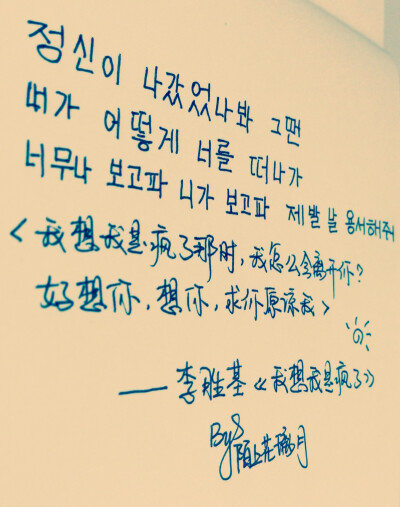 정신이 나갔었나봐 그땐
내가 어떻게 너를 떠나가
너무나 보고파 니가 보고파 제발 날 용서해줘
<我想我是疯了那时,我怎么会离开你?
好想你,想你,求你原谅我>
——李胜基《我想我是疯了》
By 陌上花 月